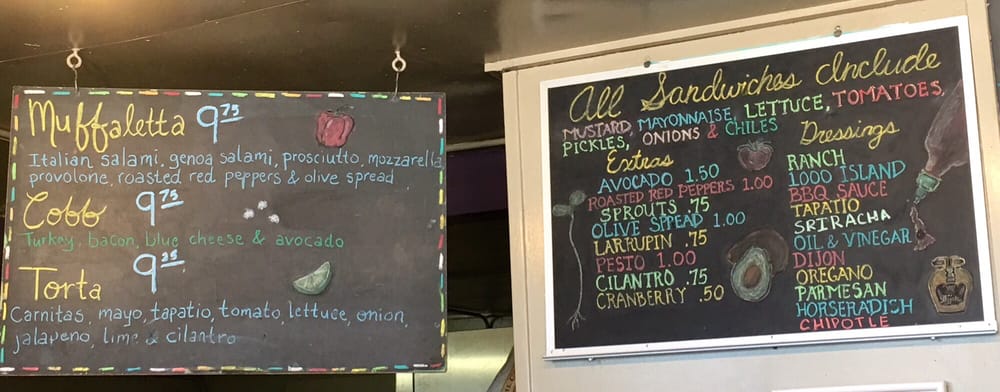 Muffaletta 9.75
Italian salami, genoa salami, prosciutto, mozzarella,
provolone, roasted red peppers & olive spread
Cobb 9.75
Turkey, bacon, blue cheese & avocado
Torta 9.25
Carnitas, mayo, tapatio, tomato, lettuce, onion,
jalapeno, lime & cilantro
All Sandwiches Include
MUSTARD, MAYONNAISE, LETTUCE, TOMATOES,
PICKLES, ONIONS & CHILES
Extras
AVOCADO 1.50
ROASTED RED PEPPERS 1.00
SPROUTS .75
OLIVE SPREAD 1.00
LARRUPIN .75
PESTO 1.00
CILANTRO .75
CRANBERRY .50
Dressings
RANCH
1000 ISLAND
BBQ SAUCE
TAPATIO
SRIRACHA
OIL & VINEGAR
DIJON
OREGANO
PARMESAN
HORSERADISH
CHIPOTLE